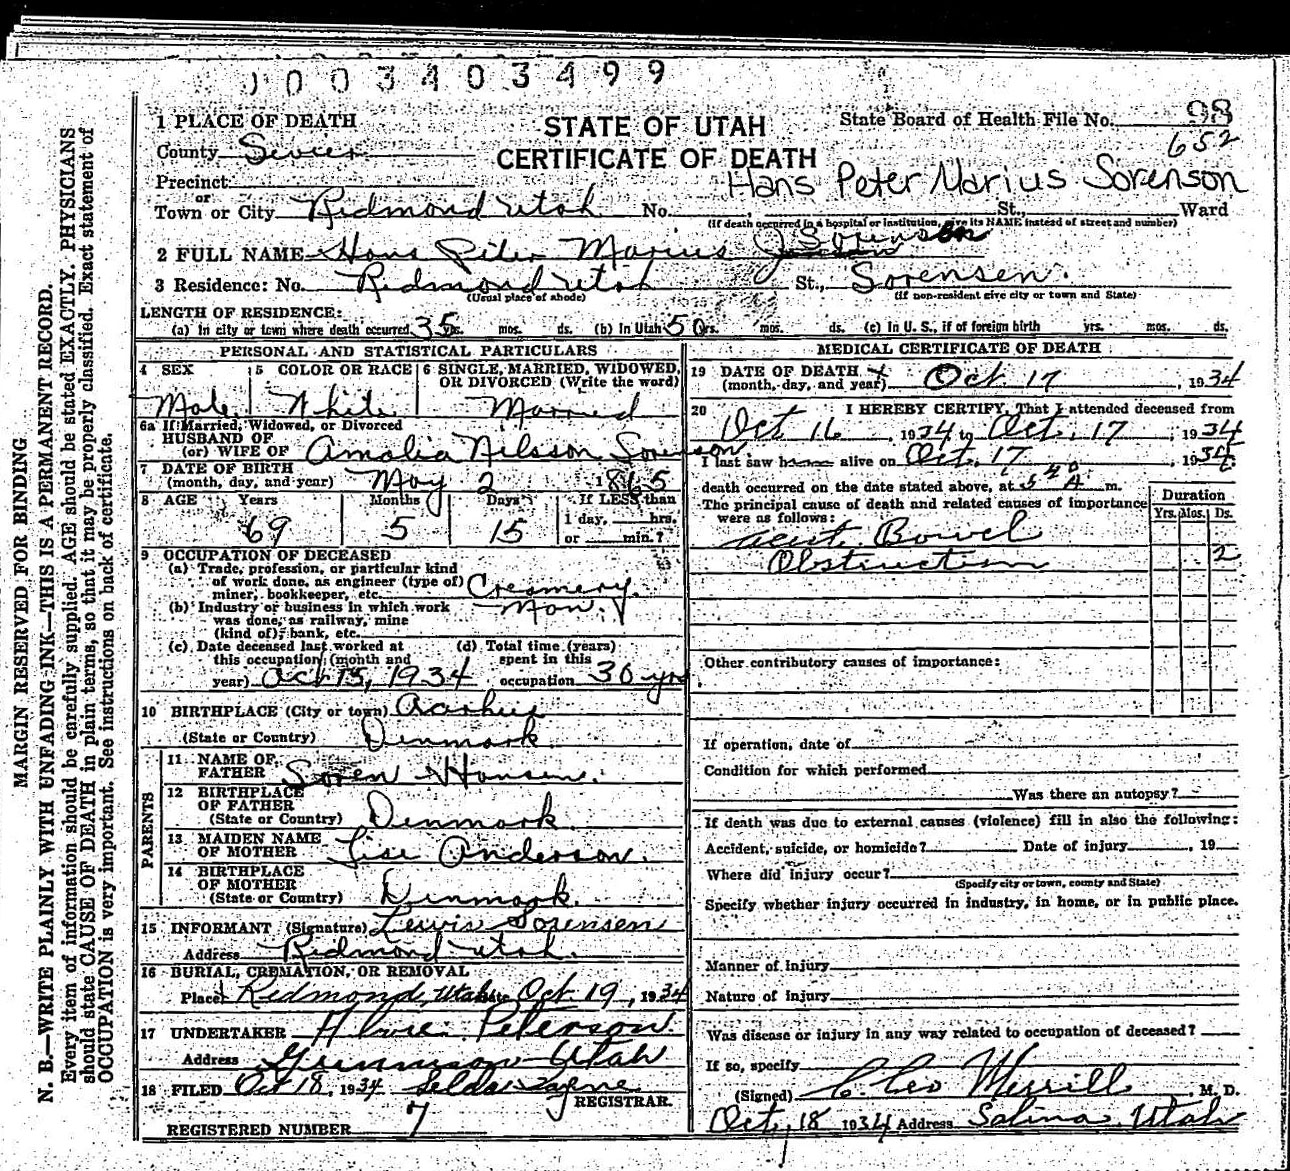 1003403499
1 PLACE OF DEATH
STATE OF UTAH
CERTIFICATE OF DEATH
State Board of Health File No. 98
652
County Sevier
Hans Peter Marius Sorenson
Precinct
or
Town or City Redmond Utah No. St., Ward
(If death occurred in a hospital or institution, give its NAME instead of street and number)
Sorenson
2 FULL NAME Hans Peter Marius
3 Residence: No. Redmond Utah St., Sorensen.
(Usual place of abode) (If non-resident give city or town and State)
LENGTH OF RESIDENCE:
(a) In city or town where death occurred 35 yrs. mos. ds. (b) In Utah 50 yrs. mos. ds. (c) In U. S., if of foreign birth yrs. mos. ds.
PERSONAL AND STATISTICAL PARTICULARS
4 SEX 5 COLOR OR RACE 6 SINGLE, MARRIED, WIDOWED, OR DIVORCED (Write the word)
Male White Married
6a If Married, Widowed, or Divorced
HUSBAND OF
(or) WIFE OF Amalia Nilsson Sorenson
7 DATE OF BIRTH
(month, day, and year) May 2 1865
8 AGE Years Months Days If LESS than
69 5 15 1 day, hrs.
or min.?
9 OCCUPATION OF DECEASED
(a) Trade, profession, or particular kind
of work done, as engineer (type of)
miner, bookkeeper, etc. Creamery
(b) Industry or business in which work Man.
was done, as railway, mine
(kind of), bank, etc.
(c) Date deceased last worked at (d) Total time (years)
this occupation (month and spent in this
year) Oct 15, 1934 occupation 30 yrs.
10 BIRTHPLACE (City or town) Aarhus
(State or Country) Denmark
PARENTS
11 NAME OF
FATHER Soren Hansen.
12 BIRTHPLACE
OF FATHER
(State or Country) Denmark
13 MAIDEN NAME
OF MOTHER Lise Anderson.
14 BIRTHPLACE
OF MOTHER
(State or Country) Denmark.
15 INFORMANT (Signature) Lewis Sorensen
Address Redmond Utah.
16 BURIAL, CREMATION, OR REMOVAL
Place Redmond, Utah Date Oct 19, 1934
17 UNDERTAKER Peterson
Address Gunnison Utah
18 FILED Oct 18, 1934 REGISTRAR.
REGISTERED NUMBER 7
MEDICAL CERTIFICATE OF DEATH
19 DATE OF DEATH
(month, day, and year) Oct 17, 1934
20 I HEREBY CERTIFY, That I attended deceased from
Oct 16, 1934 to Oct. 17, 1934
I last saw h alive on Oct. 17, 1934
death occurred on the date stated above, at 5 40 A m.
The principal cause of death and related causes of importance
were as follows:
Duration
Yrs. Mos. Ds.
Acute Bowel
Obstruction 2
Other contributory causes of importance:
If operation, date of
Condition for which performed
Was there an autopsy?
If death was due to external causes (violence) fill in also the following:
Accident, suicide, or homicide? Date of injury, 19
Where did injury occur?
(Specify city or town, county and State)
Specify whether injury occurred in industry, in home, or in public place.
Manner of Injury
Nature of injury
Was disease or injury in any way related to occupation of deceased?
If so, specify
(Signed) Merrill, M. D.
Oct, 18 1934 Address Salina, Utah
MARGIN RESERVED FOR BINDING
N. B.—WRITE PLAINLY WITH UNFADING INK—THIS IS A PERMANENT RECORD.
Every item of information should be carefully supplied. AGE should be stated EXACTLY. PHYSICIANS
should state CAUSE OF DEATH in plain terms, so that it may be properly classified. Exact statement of
OCCUPATION is very important. See instructions on back of certificate.